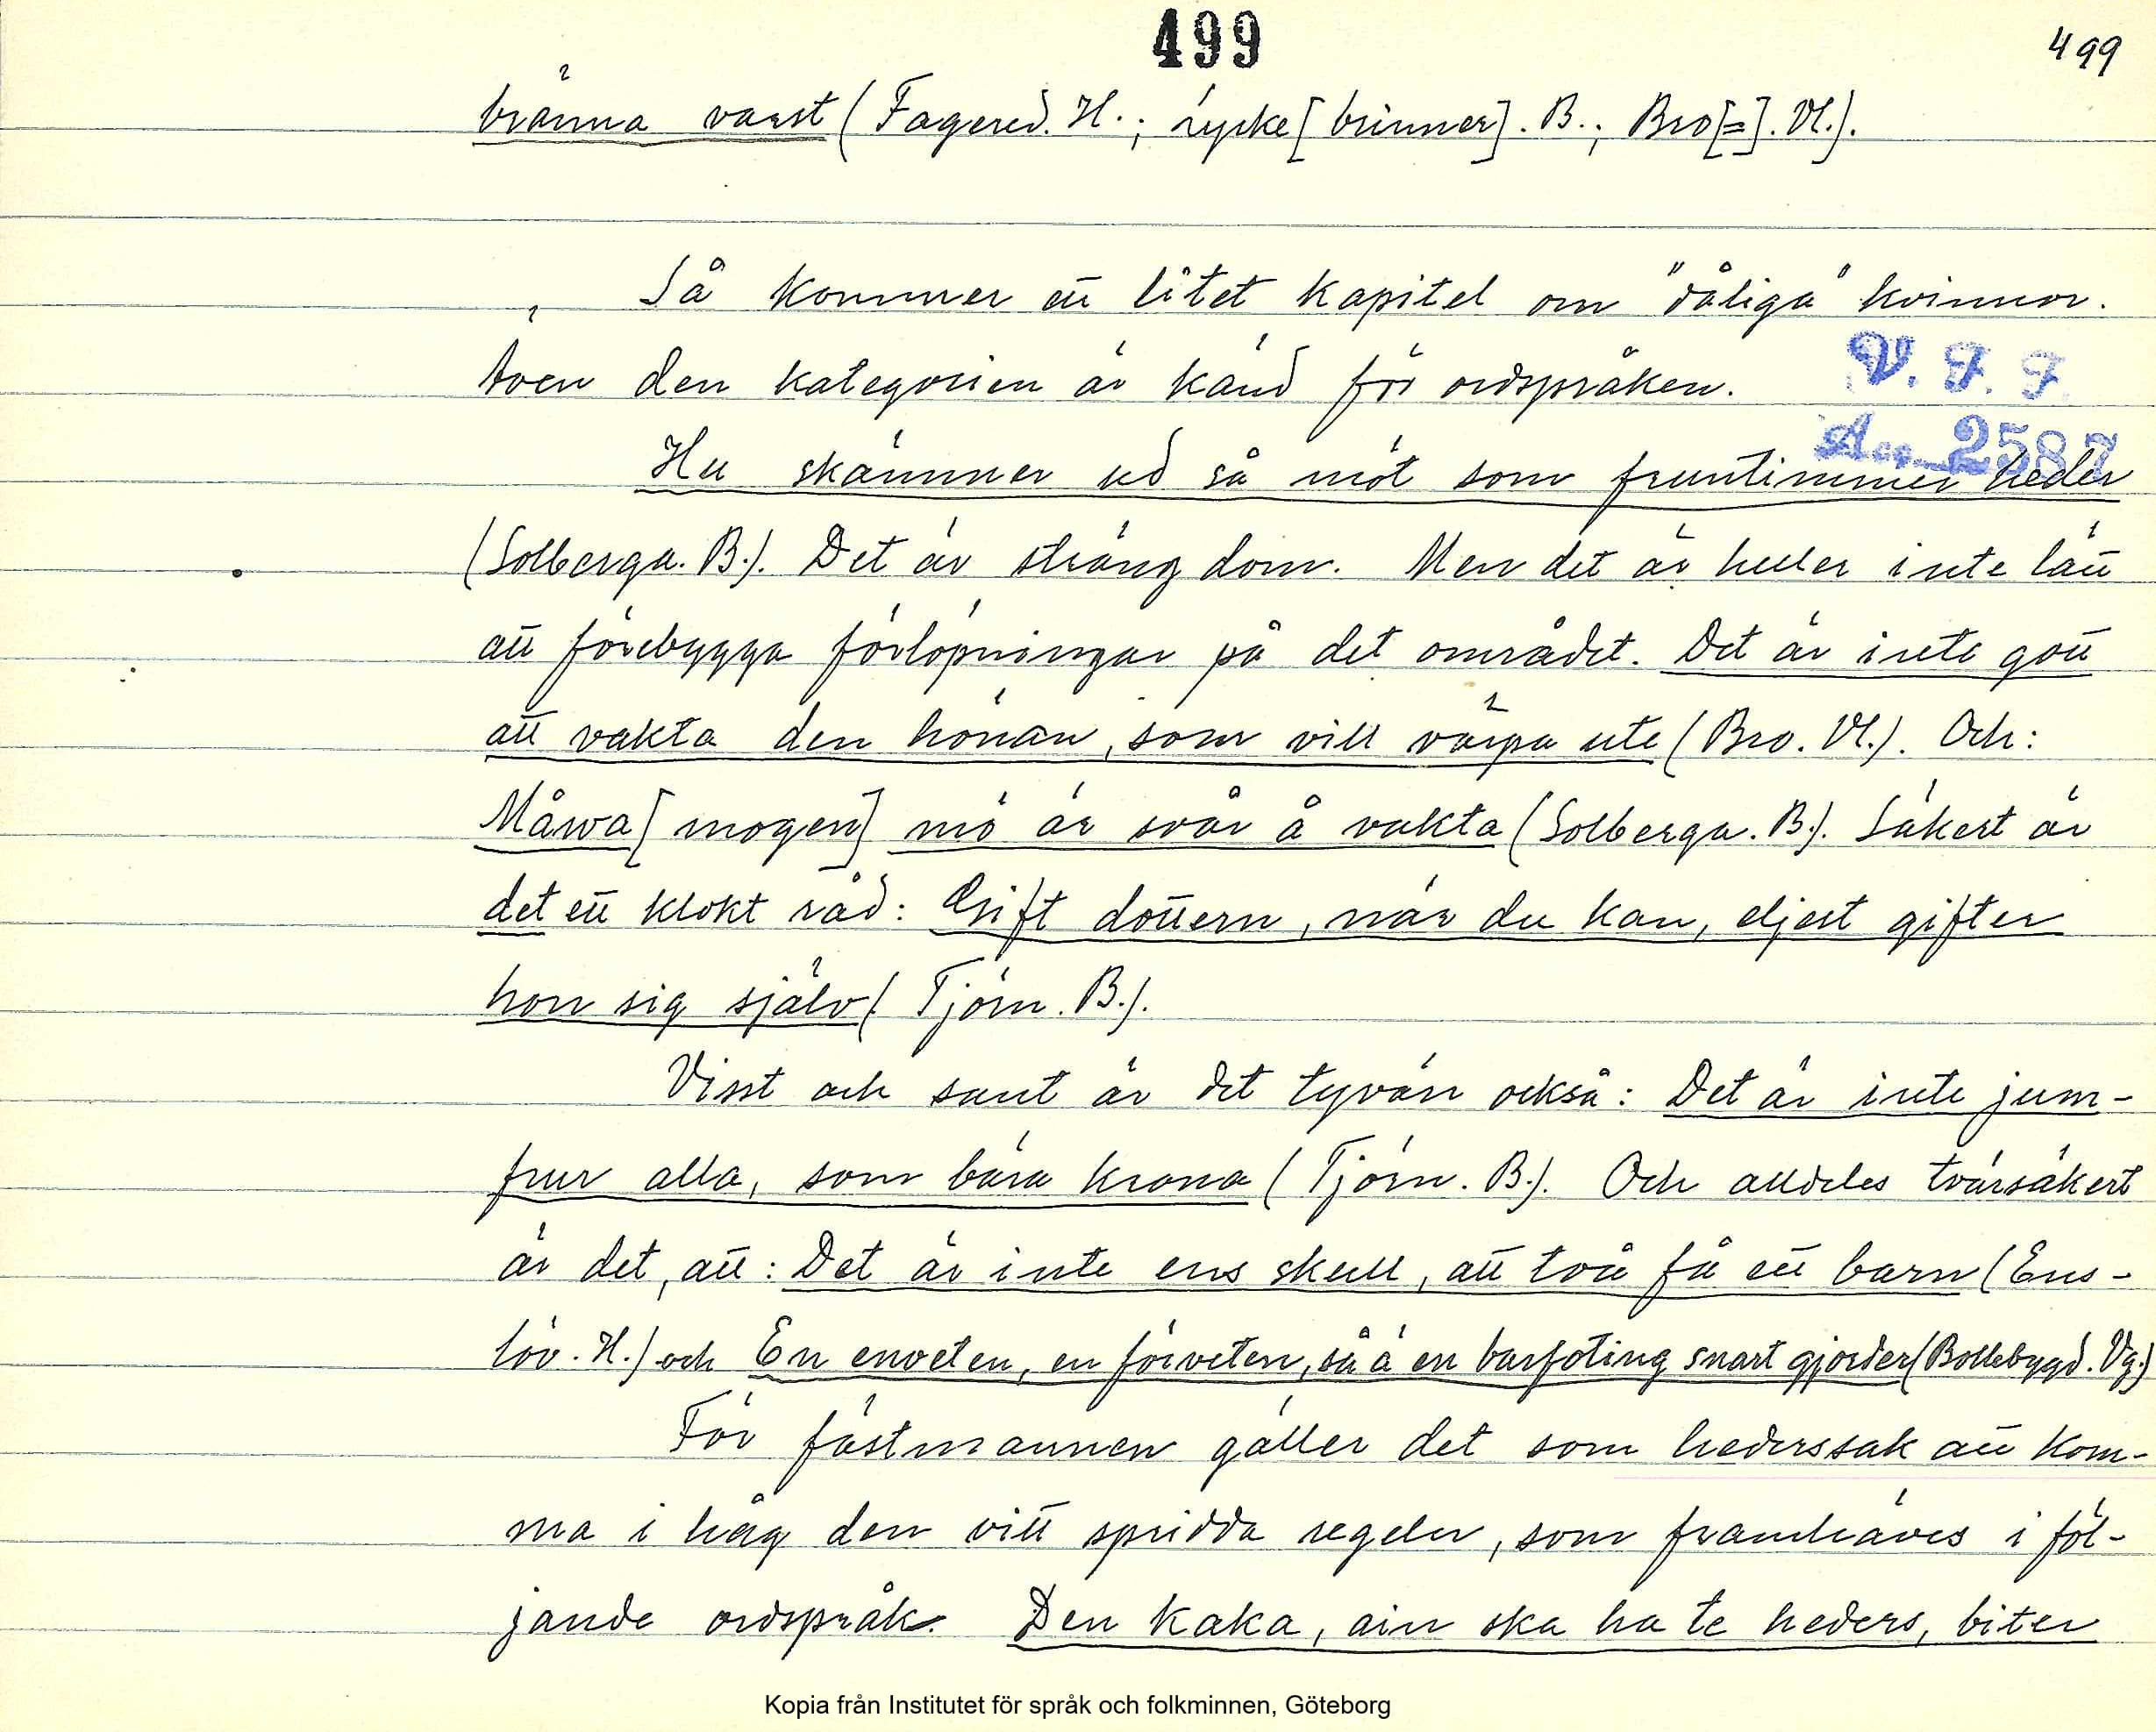 499
499
bränna varst (Fagered. H.; Lycke [brinner]. B.; Bro [=]. Vl.).
Så kommer ett litet kapitel om "dåliga" kvinnor.
Även den kategorien är känd för ordspråken.
V. F. F.
Acc. 2587
Hu skämmer ud så möt som fruntimmer heder
(Solberga. B.). Det är sträng dom. Men det är heller inte lätt
att förebygga förlöpningar på det området. Det är inte gott
att vakta den hönan, som vill värpa ute (Bro. Vl.). Och:
Måwa [mogen] mö är svår å vakta (Solberga. B.). Säkert är
det ett klokt råd: Gift dottern, när du kan, eljest gifter
hon sig själv (Tjörn. B.).
Visst och sant är det tyvärr också: Det är inte jum-
frur alla, som bära krona (Tjörn. B.). Och alldeles tvärsäkert
är det, att: Det är inte ens skull, att två få ett barn (Ens-
löv. H.) och En enveten, en förveten, så ä en barfoting snart gjorder (Bollebygd. Vg.)
För fästmannen gäller det som hederssak att kom-
ma i håg den vitt spridda regeln, som framhäves i föl-
jande ordspråk. Den kaka, ain ska ha te heders, biter
Kopia från Institutet för språk och folkminnen, Göteborg